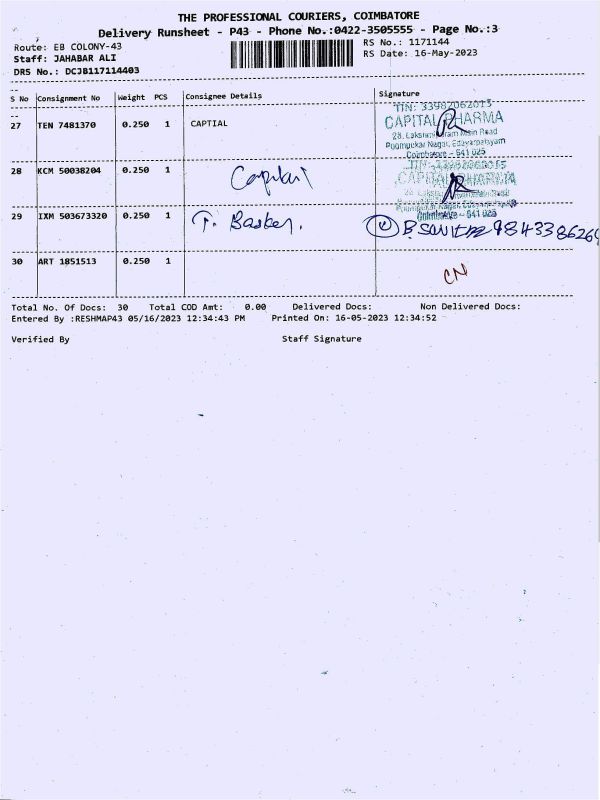 THE PROFESSIONAL COURIERS, COIMBATORE
Delivery Runsheet - P43 - Phone No.:0422-3505555 - Page No.:3
Route: EB COLONY-43
RS No.: 1171144
Staff: JAHABAR ALI
RS Date: 16-May-2023
DRS No.: DCJB117114403
S No Consignment No Weight PCS Consignee Details Signature
27 TEN 7481370 0.250 1 CAPTIAL
TIN: 33982062015
CAPITAL PHARMA
28, Main Road
Coimbatore - 641 025
28 KCM 50038204 0.250 1 Capital
CAPITAL PHARMA
Coimbatore - 641 025
29 IXM 503673320 0.250 1 T. Basker.
30 ART 1851513 0.250 1
CN
Total No. Of Docs: 30 Total COD Amt: 0.00 Delivered Docs: Non Delivered Docs:
Entered By :RESHMAP43 05/16/2023 12:34:43 PM Printed On: 16-05-2023 12:34:52
Verified By Staff Signature